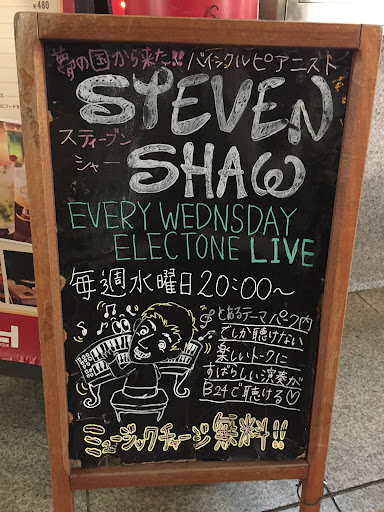 ¥480
夢の国から来た!! バイシクルピアニスト
STEVEN
スティーブン
シャー
SHAW
EVERY WEDNSDAY
ELECTONE LIVE
毎週水曜日20:00〜
とあるテーマパーク内
でしか聴けない
楽しいトークに
すばらしい演奏が
B24で聴ける♡
ミュージックチャージ無料!!